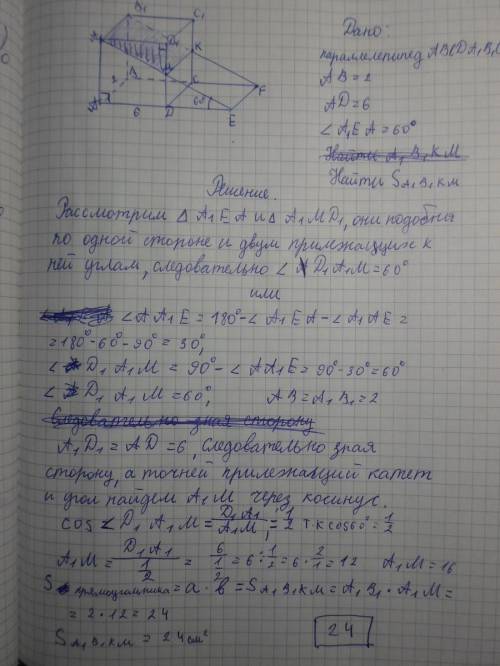 B₁
C₁
A₁
D₁
K
M
2
B
C
F
A
6
D
60°
E
Дано:
параллелепипед ABCDA₁B₁C₁
AB = 2
AD = 6
∠ A₁EA = 60°
Найти A₁ B₁ K M
Найти S A₁ B₁ K M
Решение.
Рассмотрим △ A₁ E A и △ A₁ M D₁, они подобны
по одной стороне и двум прилежащих к
ней углам, следовательно ∠ D₁ A₁ M = 60°
или
∠ A A₁ E = 180° - ∠ A₁ E A - ∠ A₁ A E =
= 180° - 60° - 90° = 30°,
∠ D₁ A₁ M = 90° - ∠ A A₁ E = 90° - 30° = 60°
∠ D₁ A₁ M = 60°, AB = A₁ B₁ = 2
Следовательно зная сторону
A₁ D₁ = AD = 6, следовательно зная
сторону, а точней прилежащий катет
и угол найдем A₁ M через косинус.
cos ∠ D₁ A₁ M = D₁A₁/A₁M = 1/2 т.к cos 60° = 1/2
A₁ M = D₁ A₁/(1/2) = 6/(1/2) = 6 : 1/2 = 6 · 2/1 = 12 A₁ M = 16
S прямоугольника = a · b = S A₁ B₁ K M = A₁ B₁ · A₁ M =
= 2 · 12 = 24
S A₁ B₁ K M = 24 см²
24